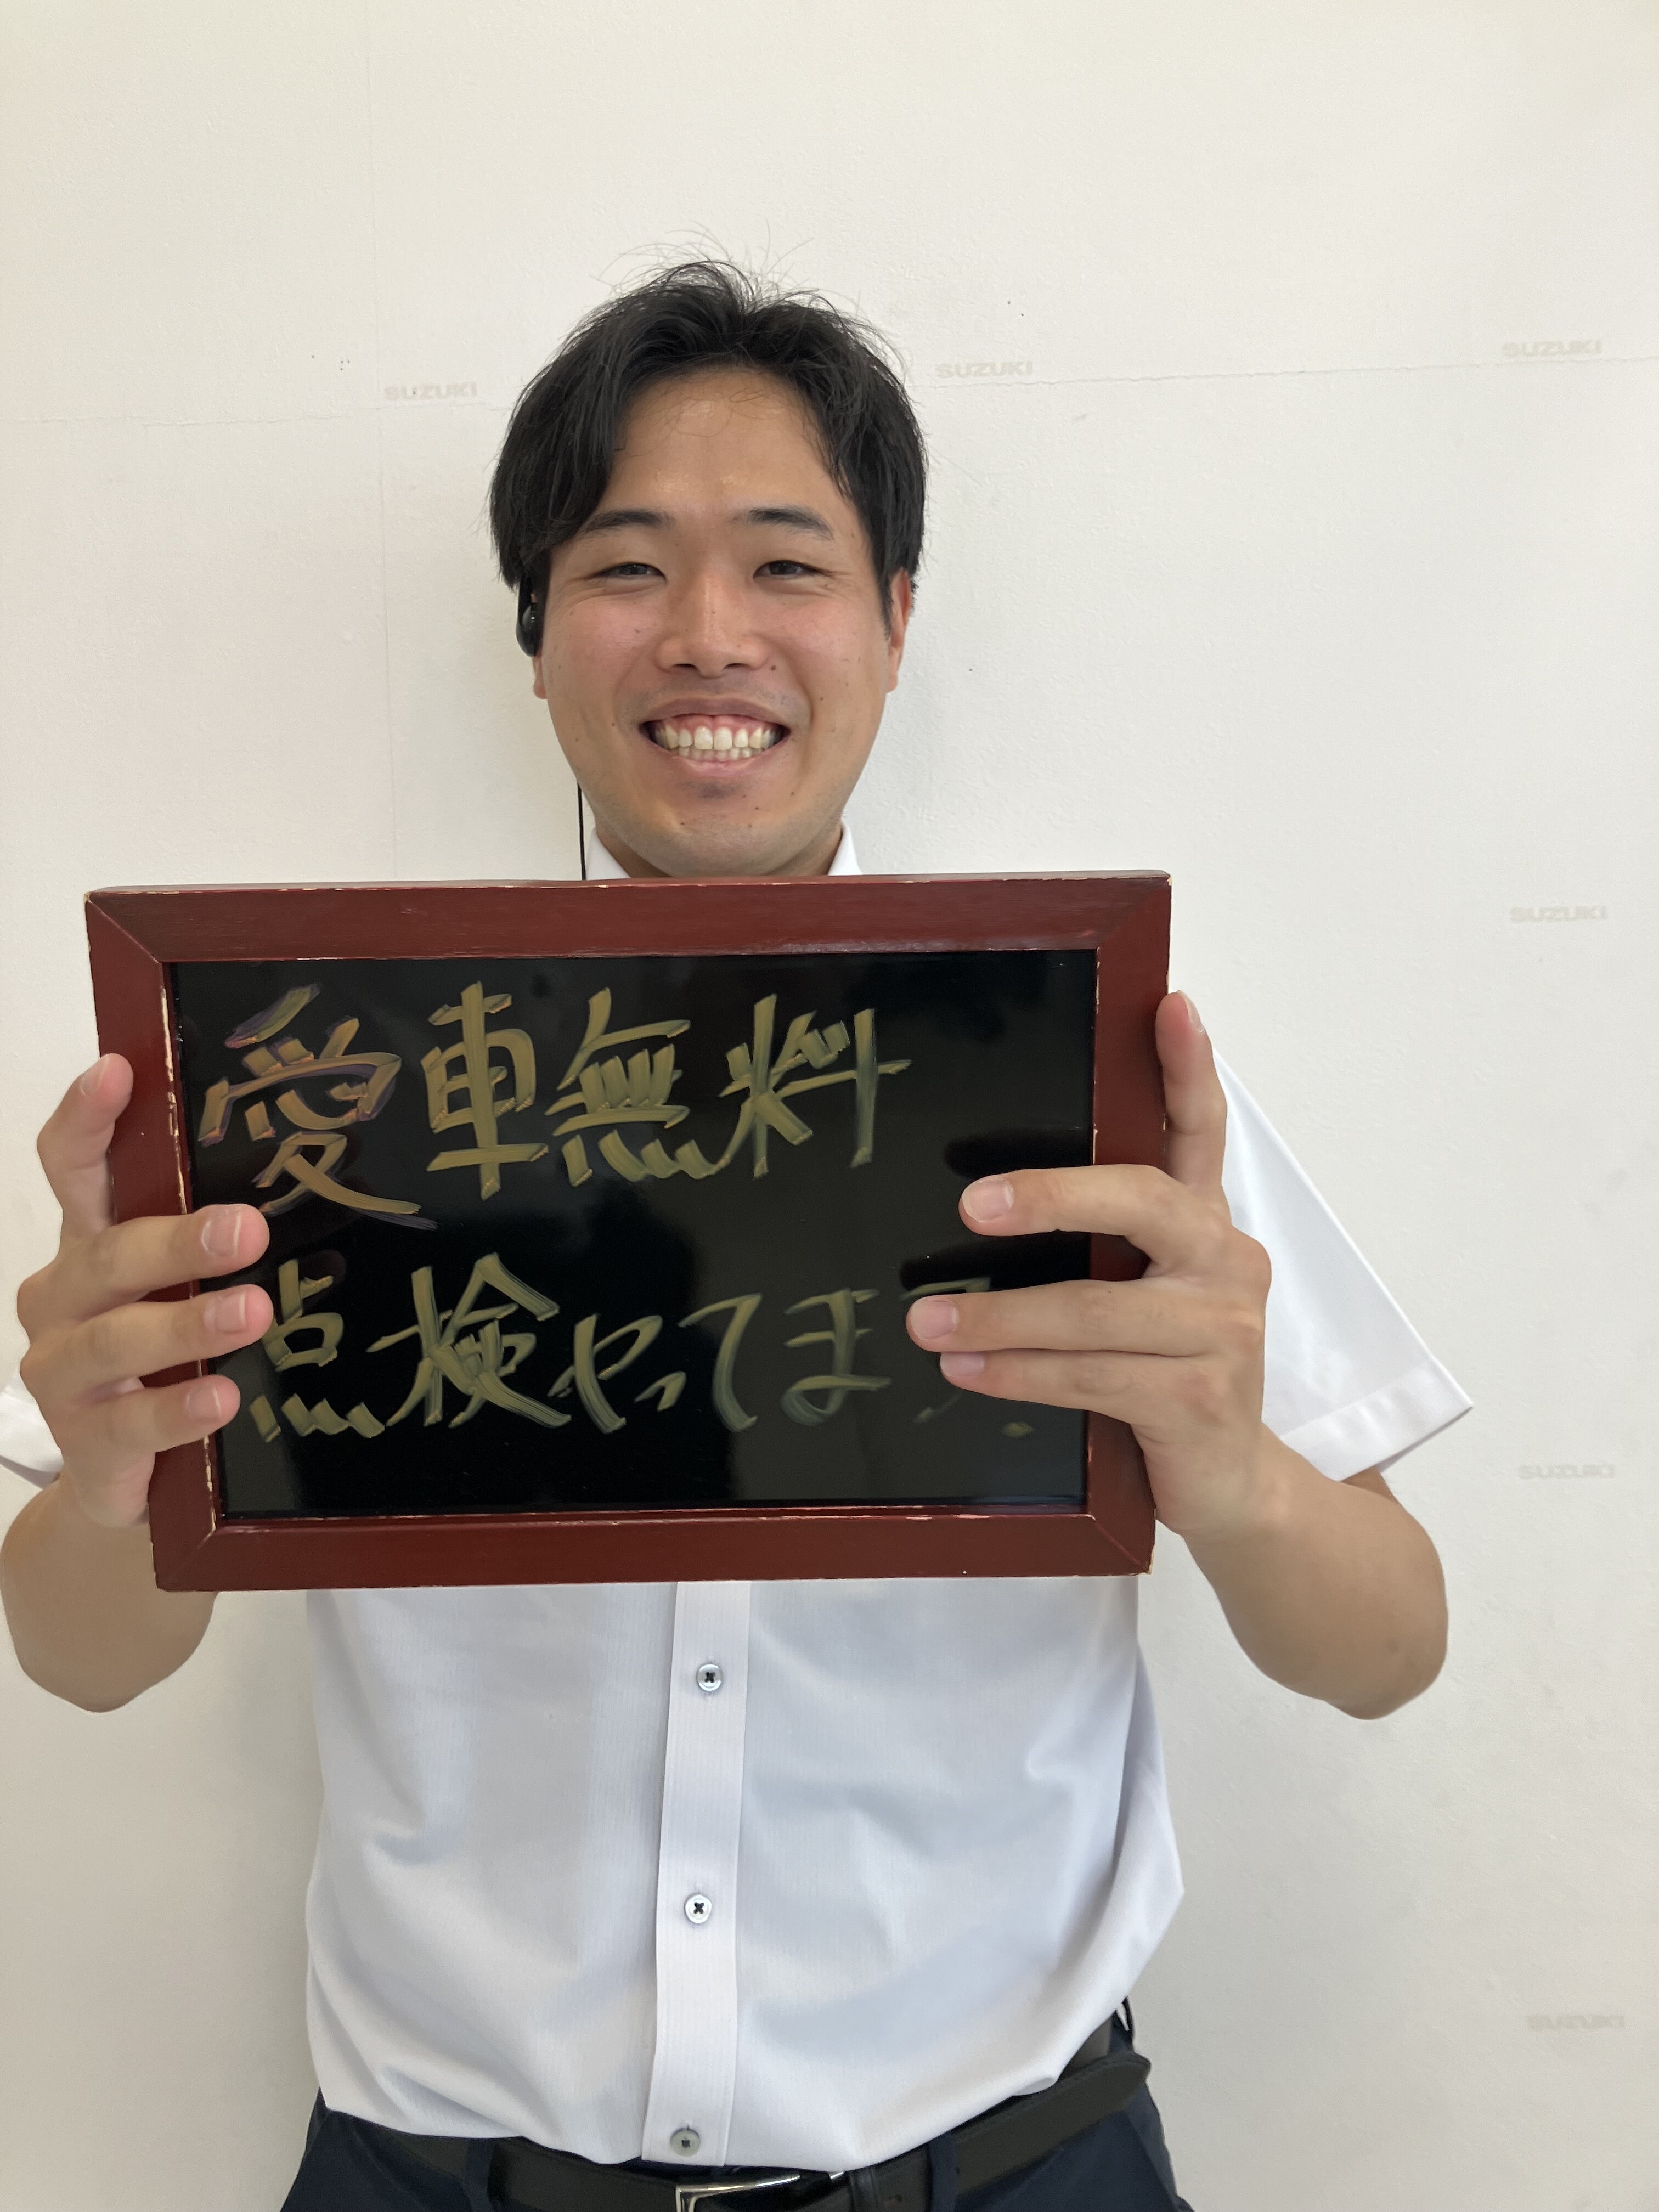 SUZUKI
SUZUKI
SUZUKI
愛車無料
点検やってます
SUZUKI
SUZUKI
SUZUKI